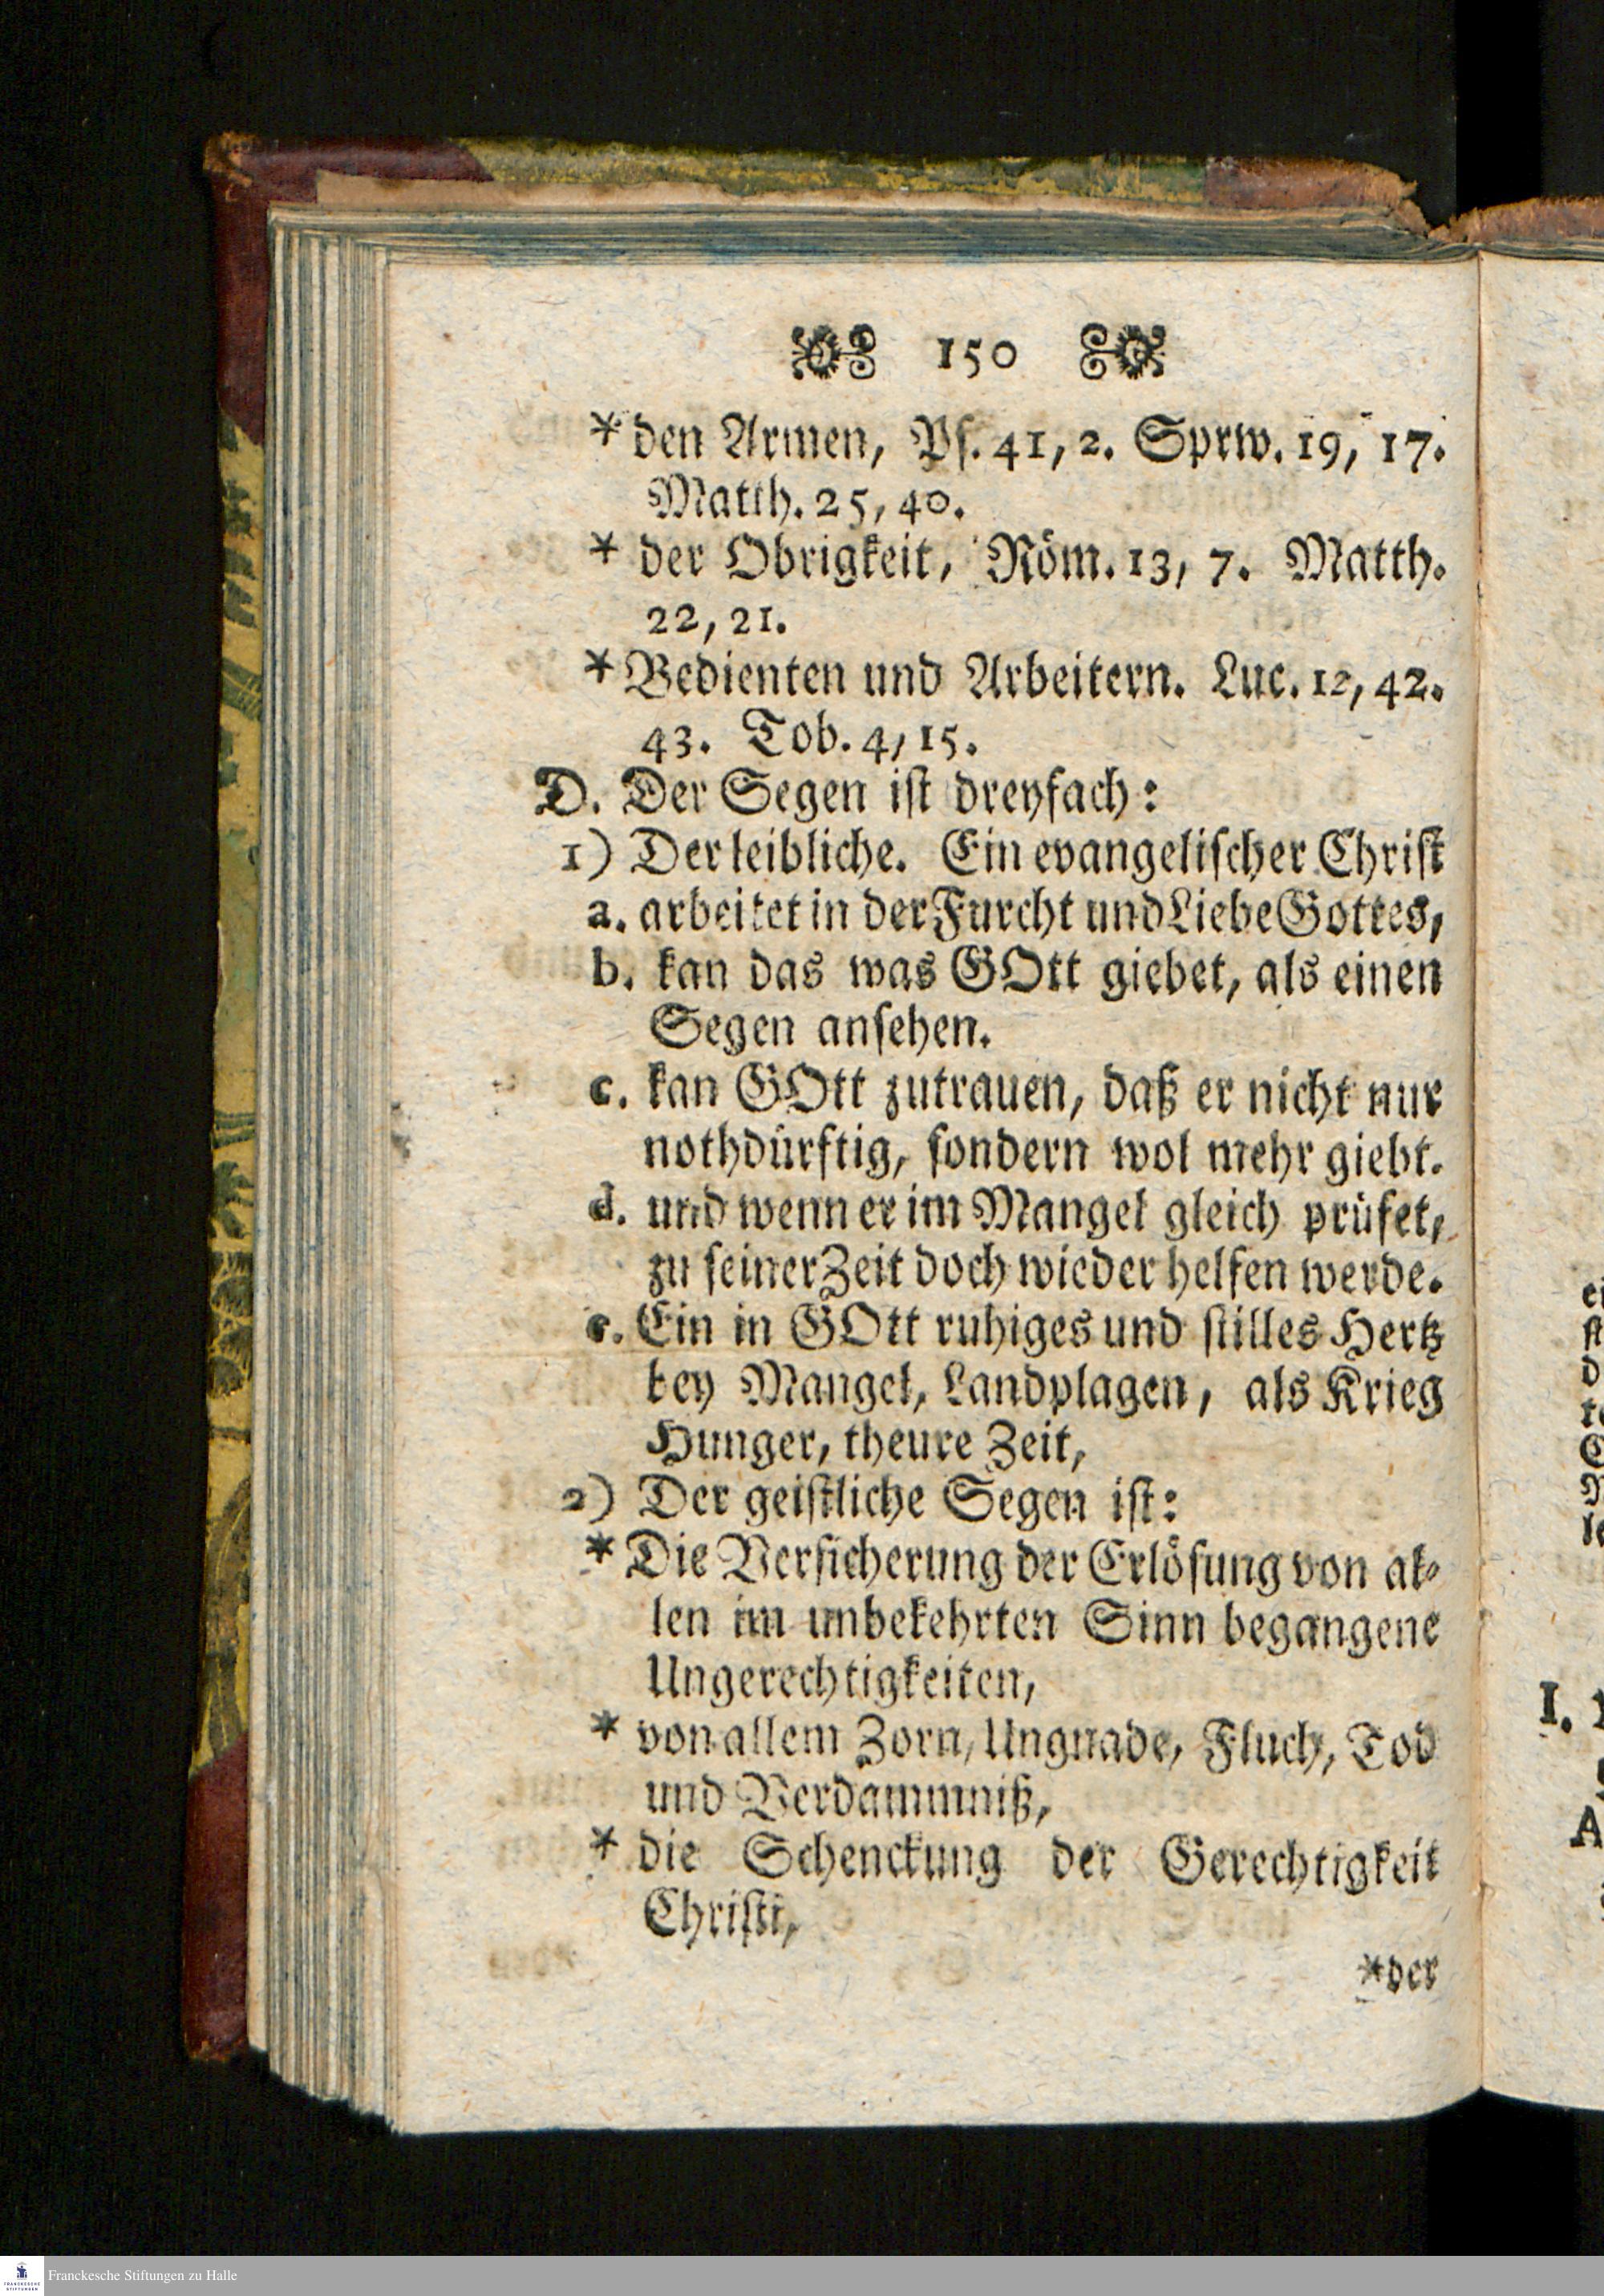 150
* den Armen, Pſ. 41, 2. Sprw. 19, 17.
Matth. 25, 40.
* der Obrigkeit, Röm. 13, 7. Matth.
22, 21.
* Bedienten und Arbeitern. Luc. 12, 42.
43. Tob. 4, 15.
D. Der Segen iſt dreyfach:
1) Der leibliche. Ein evangeliſcher Chriſt
a. arbeitet in der Furcht und Liebe Gottes,
b. kan das was GOtt giebet, als einen
Segen anſehen.
c. kan GOtt zutrauen, daß er nicht nur
nothdürftig, ſondern wol mehr giebt.
d. und wenn er im Mangel gleich prüfet,
zu ſeiner Zeit doch wieder helfen werde.
e. Ein in GOtt ruhiges und ſtilles Hertz
bey Mangel, Landplagen, als Krieg
Hunger, theure Zeit,
2) Der geiſtliche Segen iſt:
* Die Verſicherung der Erlöſung von al⸗
len im unbekehrten Sinn begangene
Ungerechtigkeiten,
* von allem Zorn, Ungnade, Fluch, Tod
und Verdammniß,
* die Schenckung der Gerechtigkeit
Chriſti,
* der
Franckesche Stiftungen zu Halle